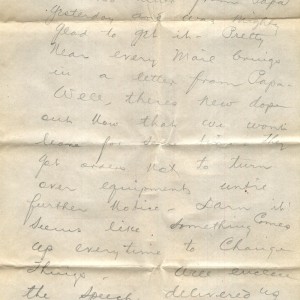 from Papa
yesterday and was mighty
glad to get it. Pretty
Near every Mail brings
in a letter from Papa.
Well, theres new dope
out Now that we wont
leave for
get orders Not to turn
over equipment until
further Notice. Darn it
Seems like something Comes
up everytime to Change
Things.
the Speech delivered us